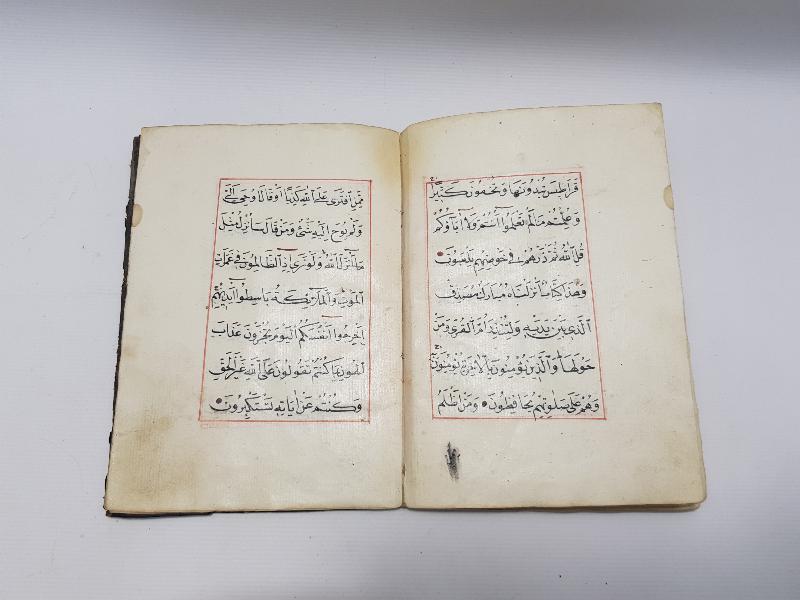 قراطيس تبدونها وتخفون كثيرا
وعلمتم ما لم تعلموا أنتم ولا آباؤكم
قل الله ثم ذرهم في خوضهم يلعبون
وهذا كتاب أنزلناه مبارك مصدق
الذي بين يديه ولتنذر أم القرى ومن
حولها والذين يؤمنون بالآخرة يؤمنون
وهم على صلوتهم يحافظون ومن أظلم
ممن افترى على الله كذبا أو قال أوحي إلي
ولم يوح إليه شئ ومن قال سأنزل مثل
ما أنزل الله ولو ترى إذ الظالمون في غمرات
الموت والملائكة باسطوا أيديهم
أخرجوا أنفسكم اليوم تجزون عذاب
الهون بما كنتم تقولون على الله غير الحق
وكنتم عن آياته تستكبرون